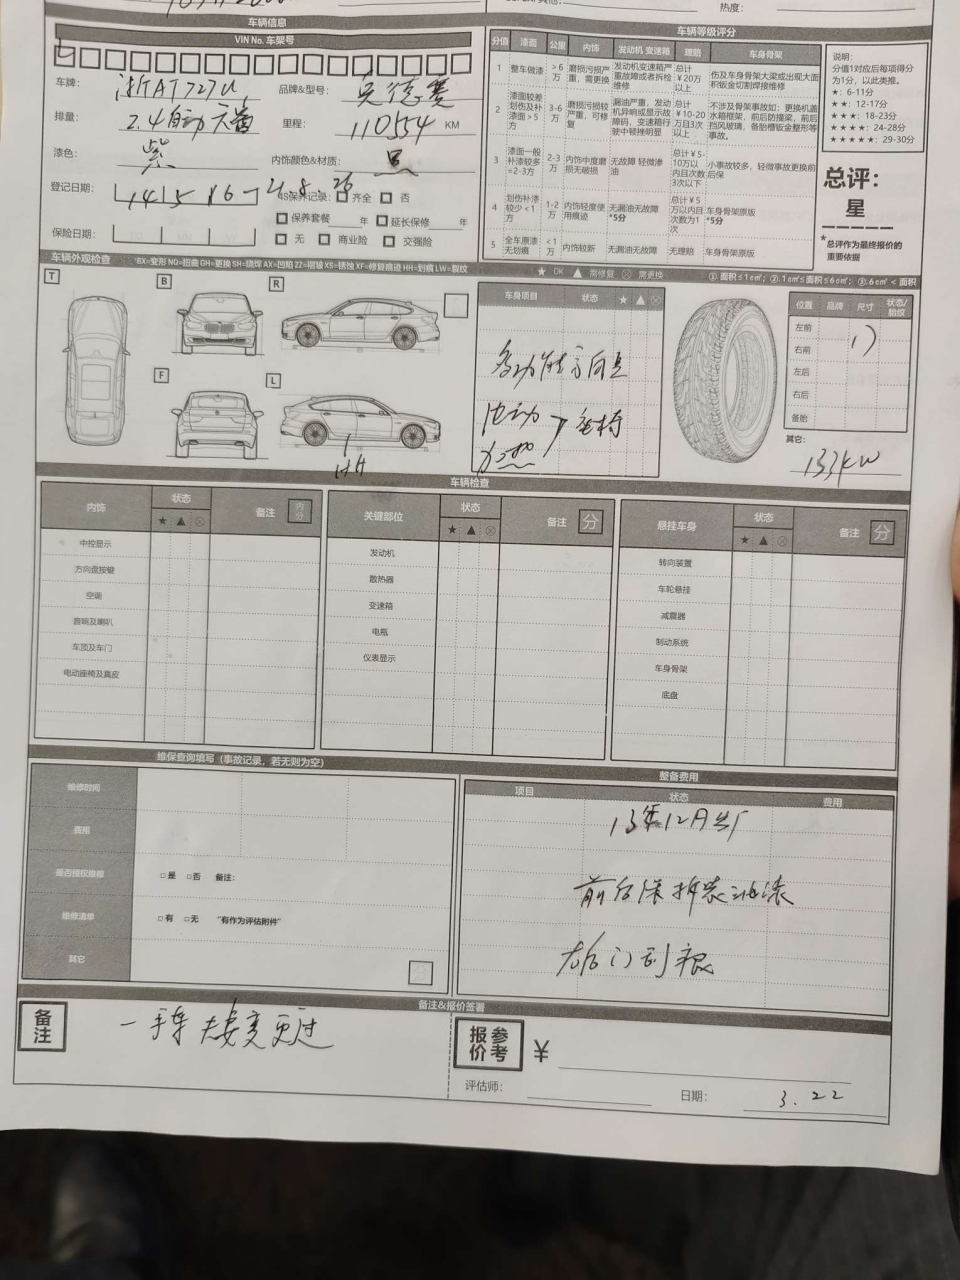 热度：
车辆信息
VIN No. 车架号
车牌： 浙AT727U 品牌&型号： 奥德赛
排量： 2.4自动天窗 里程： 110554 KM
漆色： 紫 内饰颜色&材质： 黑
登记日期： 14 5 16 - 21.8.26
4S保养记录： 齐全 否
保养套餐 年 延长保修 年
保险日期： 无 商业险 交强险
车辆等级评分
分值 漆面 公里 内饰 发动机 变速箱 理赔 车身骨架
1 整车做漆 >6万 磨损污损严重，需更换 发动机变速箱严重故障或者拆检维修 总计￥20万以上 伤及车身骨架大梁或出现大面积钣金切割焊接维修
2 漆面较差划伤及补漆面>5方 3-6万 磨损污损较严重，可修复 漏油严重，发动机异响或显示故障码，变速箱行驶中顿挫明显 总计￥10-20万且3次以上 不涉及骨架事故如：更换机盖水箱框架，前后防撞梁，前后挡风玻璃，备胎槽钣金整形等事故。
3 漆面一般补漆较多=2-3方 2-3万 内饰中度磨损无破损 无故障 轻微渗油 总计￥5-10万以内且次数3次以下 小事故较多，轻微事故更换前后保
4 划伤补漆较少<1方 1-2万 内饰轻度使用痕迹 无漏油无故障*5分 总计￥5万以内且次数为1次 车身骨架原版*5分
5 全车原漆无划痕 <1万 内饰较新 无漏油无故障 无理赔 车身骨架原版
说明：
分值1对应后每项得分为1分，以此类推。
★：6-11分
★★：12-17分
★★★：18-23分
★★★★：24-28分
★★★★★：29-30分
总评：
星
*总评作为最终报价的重要依据
车辆外观检查 *BX=变形 NQ=扭曲 GH=更换 SH=烧焊 AX=凹陷 ZZ=褶皱 XS=锈蚀 XF=修复痕迹 HH=划痕 LW=裂纹
★ OK ▲ 需修复 ⊗ 需更换 ①. 面积≤1c㎡；②. 1c㎡≤面积≤6c㎡；③. 6c㎡<面积
T B R
F L
HH
车身项目 状态 ★ ▲ ⊗
多功能方向盘
电动
加热 座椅
位置 品牌 尺寸 状态/胎纹
左前
右前
左后
右后
备胎
17
其它：
133KW
车辆检查
内饰 状态 ★ ▲ ⊗ 备注 内分
中控显示
方向盘按键
空调
音响及喇叭
车顶及车门
电动座椅及真皮
关键部位 状态 ★ ▲ ⊗ 备注 分
发动机
散热器
变速箱
电瓶
仪表显示
悬挂车身 状态 ★ ▲ ⊗ 备注 分
转向装置
车轮悬挂
减震器
制动系统
车身骨架
底盘
维保查询填写（事故记录，若无则为空）
维修时间
费用
是否授权维修 □是 □否 备注：
维修清单 □有 □无 "有作为评估附件"
其它
整备费用
项目 状态 费用
13年12月出厂
前后保拆装油漆
右后门到
备注&报价签署
备注
一手车 夫妻变更过
报价参考 ￥
评估师： 日期： 3.22